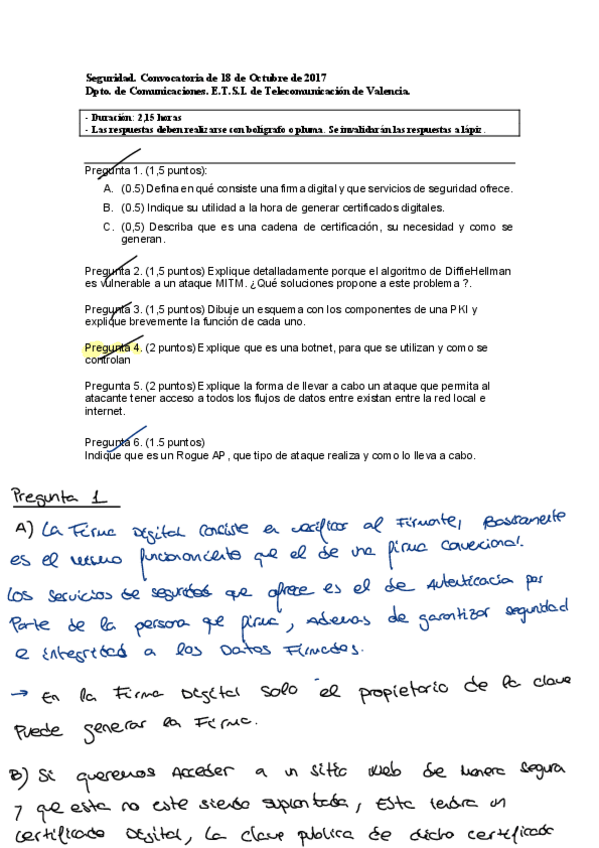 Seguridad. Convocatoria de 18 de Octubre de 2017
Dpto. de Comunicaciones. E.T.S.I. de Telecomunicación de Valencia.
- Duración: 2,15 horas
- Las respuestas deben realizarse con bolígrafo o pluma. Se invalidarán las respuestas a lápiz.
Pregunta 1. (1,5 puntos):
A. (0.5) Defina en qué consiste una firma digital y que servicios de seguridad ofrece.
B. (0.5) Indique su utilidad a la hora de generar certificados digitales.
C. (0,5) Describa que es una cadena de certificación, su necesidad y como se
generan.
Pregunta 2. (1,5 puntos) Explique detalladamente porque el algoritmo de DiffieHellman
es vulnerable a un ataque MITM. ¿Qué soluciones propone a este problema ?.
Pregunta 3. (1,5 puntos) Dibuje un esquema con los componentes de una PKI y
explique brevemente la función de cada uno.
Pregunta 4. (2 puntos) Explique que es una botnet, para que se utilizan y como se
controlan
Pregunta 5. (2 puntos) Explique la forma de llevar a cabo un ataque que permita al
atacante tener acceso a todos los flujos de datos entre existan entre la red local e
internet.
Pregunta 6. (1.5 puntos)
Indique que es un Rogue AP, que tipo de ataque realiza y como lo lleva a cabo.
Pregunta 1
A) La Firma Digital consiste en verificar al Firmante, Basicamente
es el mismo funcionamiento que el de una firma convencional.
Los servicios de seguridad que ofrece es el de Autenticacia por
Parte de la persona que firma, Ademas de garantizar seguridad
e integridad a los Datos Firmados.
→ En la Firma Digital solo el propietario de la clave
Puede generar la Firma.
B) Si queremos Acceder a un sitio web de manera segura
y que esta no este siendo suplantada, Esta tendra un
certificado Digital, La clave publica de dicho certificado